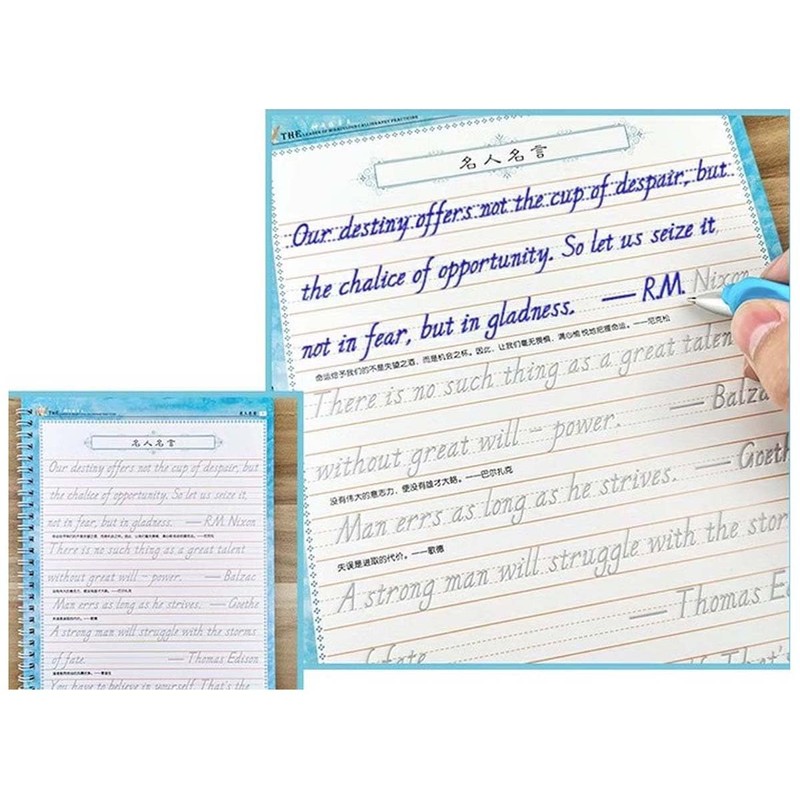 THE LEADER OF MIRACULOUS CALLIGRAPHY PRACTICING
名人名言
Our destiny offers not the cup of despair, but
the chalice of opportunity. So let us seize it
not in fear, but in gladness. — R.M. Nixon
命运给予我们的不是失望之酒，而是机会之杯。因此，让我们毫无畏惧，满心愉悦地把握命运。——尼克松
There is no such thing as a great talen
without great will - power. — Balza
没有伟大的意志力，便没有雄才大略。——巴尔扎克
Man errs as long as he strives. — Goeth
失误是进取的代价。——歌德
A strong man will struggle with the stor
— Thomas Ed
of fate.
That's
THE
名人名言
名人名言
Our destiny offers not the cup of despair, but
the chalice of opportunity. So let us seize it,
not in fear, but in gladness. — R.M. Nixon
There is no such thing as a great talent
without great will - power. — Balzac
没有伟大的意志力，便没有雄才大略。——巴尔扎克
Man errs as long as he strives. — Goethe
失误是进取的代价。——歌德
A strong man will struggle with the storms
of fate. — Thomas Edison
You have to believe in yourself. That's the